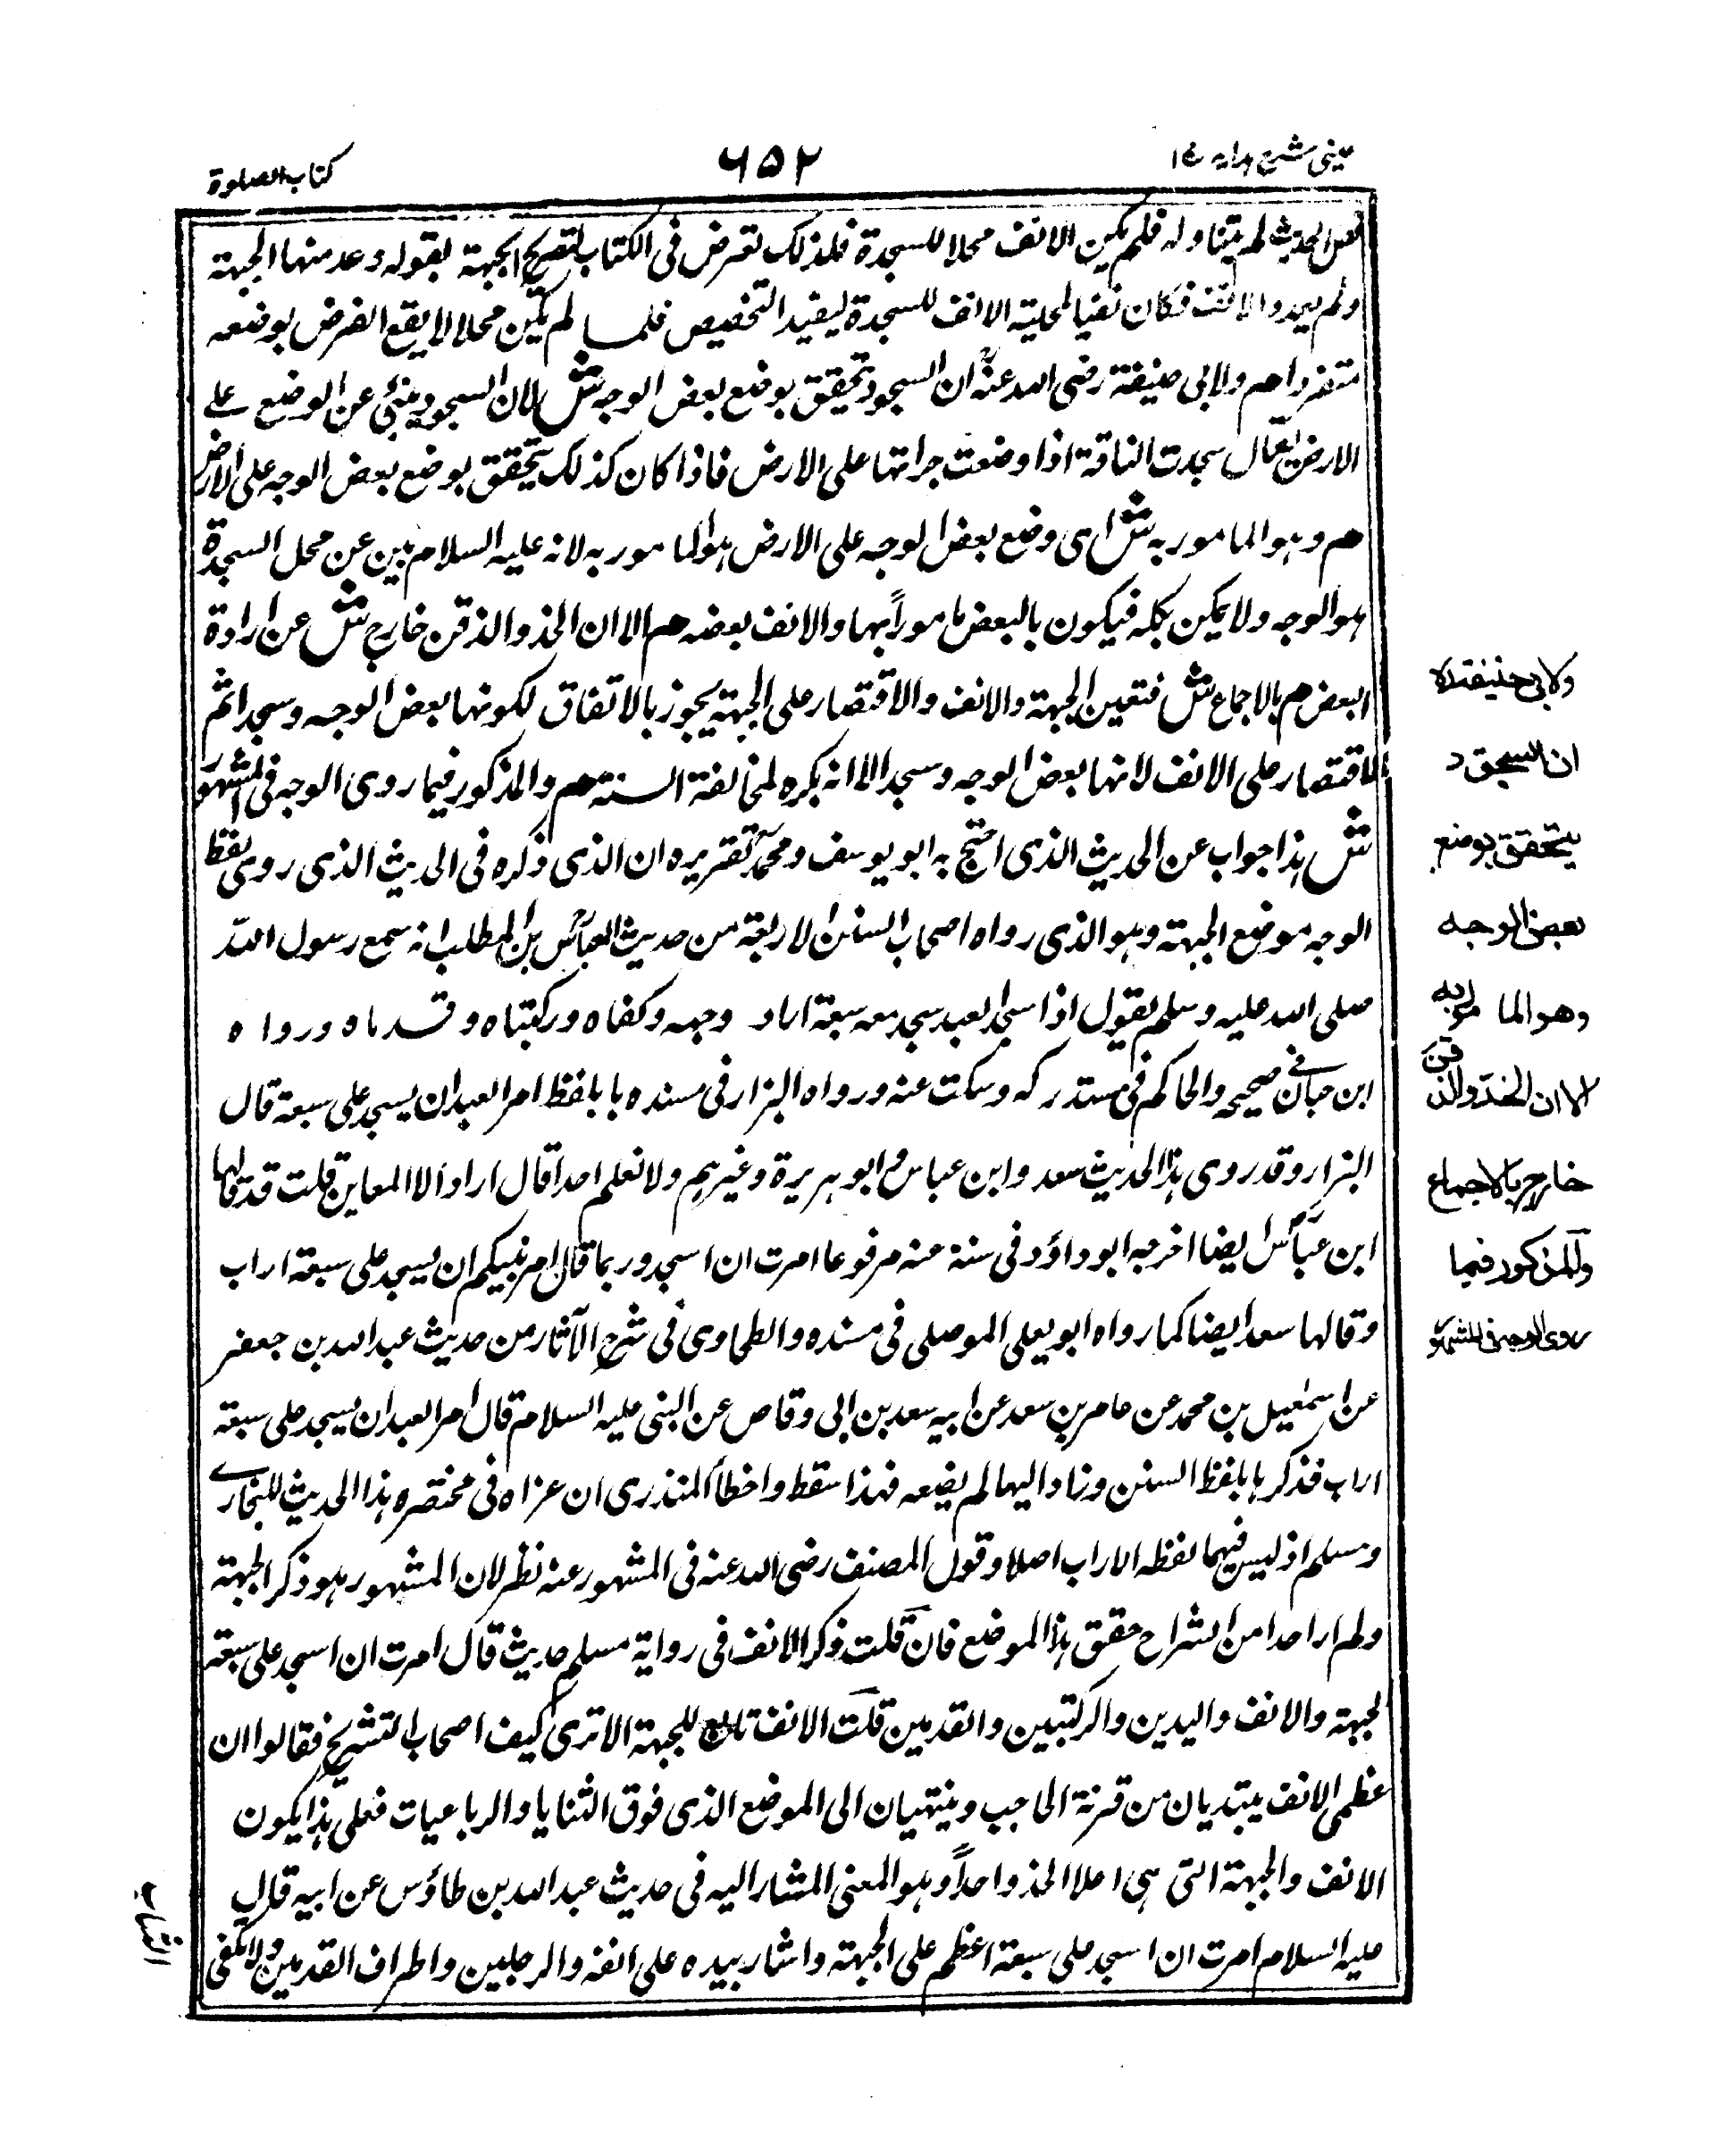 عینی شرح هدایه ج۱
۶۵۲
کتاب الصلوة
نص الحدیث لم یتناوله فلم یکن الانف محلا للسجدة فلذلک تعرض فی الکتاب لتصریح الجبهة بقوله وعد منها الجبهة
ولم یعد والانف فکان نفیا لمحلیة الانف للسجدة لیفید التخصیص فلما لم یکن محلا لا یقع الفرض بوضعه
متفردا هم ولابی حنیفة رضی الله عنه ان السجود تحقیق بوضع بعض الوجه ش لان السجود ینبئ عن الوضع علی
الارض یقال سجدت الناقة اذا وضعت جرانها علی الارض فاذا کان کذلک یتحقق بوضع بعض الوجه علی الارض
هم وهو المامور به ش ای وضع بعض الوجه علی الارض هو المامور به لانه علیه السلام بین عن محل السجدة
هو الوجه ولا یمکن بکله فیکون بالبعض مامورا بها والانف بعضه هم الا ان الخد والذقن خارج ش عن ارادة
البعض هم بالاجماع ش فتعین الجبهة والانف والاقتصار علی الجبهة یجوز بالاتفاق لکونها بعض الوجه وسجد اثم
الاقتصار علی الانف لانها بعض الوجه وسجد الا انه یکره لمخالفة السنة هم والمذکور فیما روی الوجه فی المشهور
ش هذا جواب عن الحدیث الذی احتج به ابو یوسف ومحمد تقریره ان الذی ذکره فی الحدیث الذی روی بلفظ
الوجه موضع الجبهة وهو الذی رواه اصحاب السنن الاربعة من حدیث العباس بن المطلب انه سمع رسول الله
صلی الله علیه وسلم یقول اذا سجد العبد سجد معه سبعة اراد وجهه وکفاه ورکبتاه وقدماه ورواه
ابن حبان فی صحیحه والحاکم فی مستدرکه وسکت عنه ورواه البزار فی مسنده بابلفظ امر العبد ان یسجد علی سبعة قال
البزار وقد روی هذا الحدیث سعد وابن عباس وابو هریرة وغیرهم ولا نعلم احدا قال اراد الا المعاین قلت قد قالها
ابن عباس ایضا اخرجه ابو داؤد فی سننه عنه مرفوعا امرت ان اسجد وربما قال امر نبیکم ان یسجد علی سبعة اراب
وقالها سعد ایضا کما رواه ابو یعلی الموصلی فی مسنده والطحاوی فی شرح الآثار من حدیث عبد الله بن جعفر
عن اسمٰعیل بن محمد عن عامر بن سعد عن ابیه سعد بن ابی وقاص عن النبی علیه السلام قال امر العبد ان یسجد علی سبعة
اراب فذکرها بلفظ السنن وزاد الیها لم یضعه فهذا سقط واخطأ المنذری ان عزاه فی مختصره هذا الحدیث للبخاری
ومسلم اذ لیس فیهما لفظه الاراب اصلا وقول المصنف رضی الله عنه فی المشهور عنه نظر لان المشهور هو ذکر الجبهة
ولم ار احدا من الشراح حقق هذا الموضع فان قلت ذکر الانف فی روایة مسلم حدیث قال امرت ان اسجد علی سبعة
لجبهة والانف والیدین والرکبتین والقدمین قلت الانف تابع للجبهة الا تری کیف اصحاب التشریح فقالوا ان
عظمی الانف یبتدیان من قرنة الحاجب وینتهیان الی الموضع الذی فوق الثنایا والرباعیات فعلی هذا یکون
الانف والجبهة التی هی اعلا الخد واحدا وهو المعنی المشار الیه فی حدیث عبد الله بن طاؤس عن ابیه قال
علیه السلام امرت ان اسجد علی سبعة اعظم علی الجبهة واشار بیده علی انفه والرجلین واطراف القدمین ولا نکفی
ولابی حنیفة
ان السجود
یتحقق بوضع
بعض الوجه
وهو المامور به
الا ان الخد والذقن
خارج بالاجماع
والمذکور فیما
روی الوجه فی المشهور
الثیاب